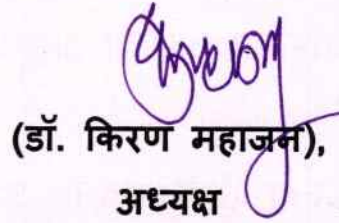 (डॉ. किरण महाजन),
अध्यक्ष